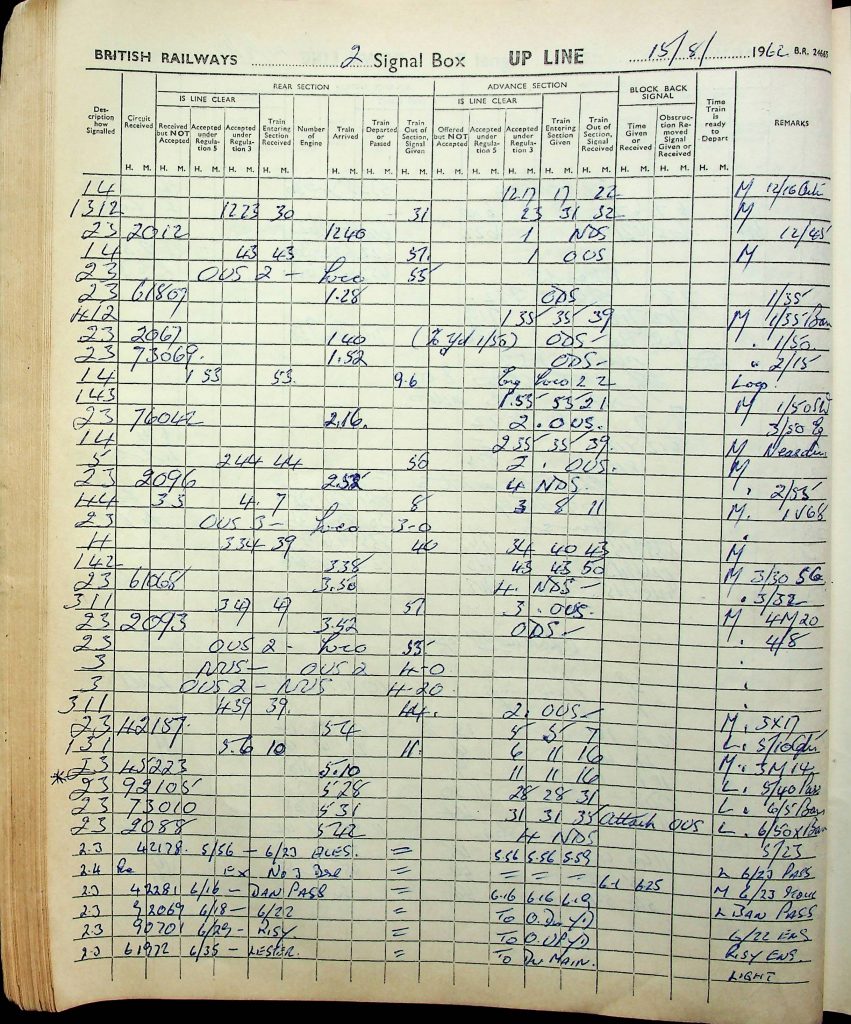 BRITISH RAILWAYS 2 Signal Box UP LINE 15/8/ 1962 B.R. 24663
REAR SECTION ADVANCE SECTION BLOCK BACK SIGNAL
IS LINE CLEAR IS LINE CLEAR
Description how Signalled Circuit Received Received but NOT Accepted Accepted under Regulation 5 Accepted under Regulation 3 Train Entering Section Received Number of Engine Train Arrived Train Departed or Passed Train Out of Section Signal Given Offered but NOT Accepted Accepted under Regulation 5 Accepted under Regulation 3 Train Entering Section Given Train Out of Section, Signal Received Time Given or Received Obstruction Removed Signal Given or Received Time Train is ready to Depart REMARKS
H. M. H. M. H. M. H. M. H. M. H. M. H. M. H. M. H. M. H. M. H. M. H. M. H. M. H. M. H. M. H. M.
14 1217 17 22 M 12/16
1312 1223 30 31 23 31 32 M
23 2012 1240 1 NDS 12/45
14 43 43 51 1 OUS M
23 OUS 2 - Loco 55
23 61807 1.28 ODS 1/35
412 1 35 35 39 M 1/35 Ban
23 2067 140 1/50) ODS - 1/50
23 73069. 1.52 ODS - 2/15
14 1 53 53. 9.6 Eng Loco 2 2
143 1.55 55 21 M 1/50
23 76042 2.16. 2. OUS. 3/50
14 2 35 35 39. M
5 244 44 50 2. OUS. M
23 2096 2.52 4 NDS. 2/55
44 35 4. 7 8 3 8 11 M.
23 OUS 3 - Loco 3-0
4 334 39 40 34 40 43 M
142 3.38 43 43 50 M 3/30
23 61068 3.50 4. NDS - 3/32
311 349 49 51 3. OUS. M 4M20
23 2093 3.42 ODS - 4/8
23 OUS 2 - Loco 55
3 NUS - OUS 2 4-0
3 OUS 2 - NUS 4-20
311 439 39. 44. 2. OUS - M. 3X17
23 42157. 54 5 5 7 L. 5/10
131 5.6 10 11. 6 11 16 M. 3M14
*23 45223 5.10 11 11 16 L. 5/40 Pass
23 92105 528 28 28 31 L. 6/5 Ban
23 73010 531 31 31 35 attach OUS L. 6/50X Ban
23 2088 542 4 NDS 5/23
2.3 42178. 5/56 - 6/23 = 5.56 5.56 5.59 L 6/23 PASS
2.4 Ex No 3 = = = = 6-1 625 M 6/23
2.3 42281 6/16 - BAN PASS = 6.16 6.16 6.19 L BAN PASS
2.3 92069 6/18 - 6/22 = TO 6/22 ENG
2.3 90701 6/29 - RISY = TO RISY ENG.
2.3 61972 6/35 - LESTER. = TO MAIN. LIGHT